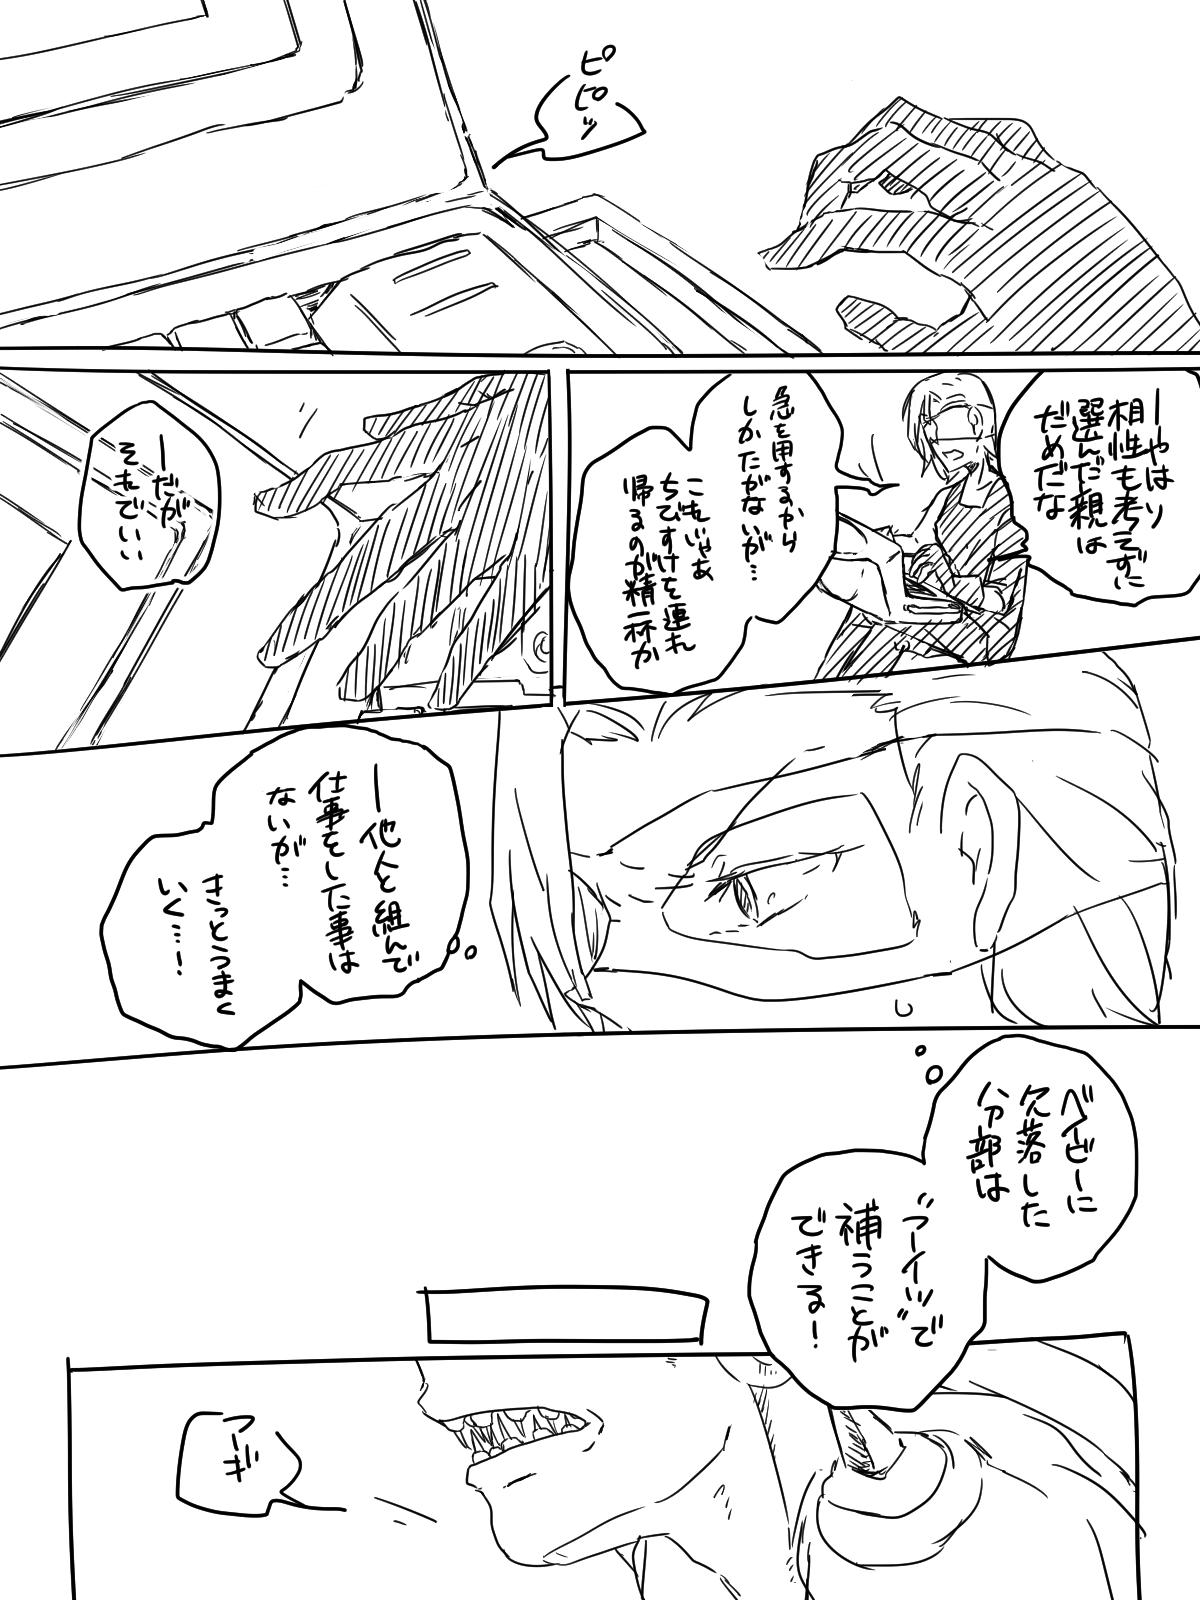 ピピッ
ーやはり
相性も考えずに
選んだ親は
だめだな
急を用するから
しかたがないが…
これじゃあ
ちびすけを連れ
帰るのが精一杯か
ーだが
それでいい
ー他人と組んで
仕事をした事は
ないが…
きっとうまく
いく…!
ベイビーに
欠落した
部分は
"フーイッ"で
補うことが
できる!
フーギ